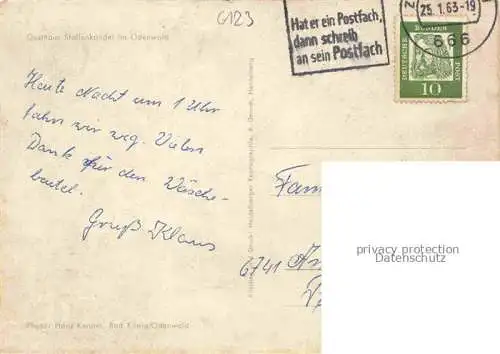 G123
Gasthaus Stallenkandel im Odenwald
Hat er ein Postfach,
dann schreib
an sein Postfach
25.1.63-19
666
DEUTSCHE
BUNDES
POST
10
Heute Nacht um 1 Uhr
fahn wir weg. Vielen
Dank für den Wäsche-
beutel.
Gruß Klaus
Fam
6741
privacy protection
Datenschutz
Photo: Hans Kramm, Bad König/Odenwald